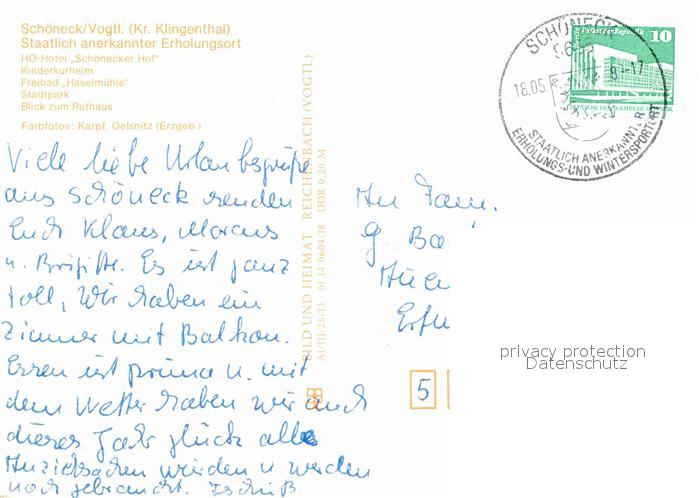 Schöneck/Vogtl. (Kr. Klingenthal)
Staatlich anerkannter Erholungsort
HO-Hotel „Schönecker Hof"
Kinderkurheim
Freibad „Haselmühle"
Stadtpark
Blick zum Rathaus
Farbfotos: Karpf, Oelsnitz (Erzgeb.)
Viele liebe Urlaubsgrüße
aus Schöneck senden
Euch Klaus, Marcus
u. Brigitte. Es ist ganz
toll, Wir haben ein
Zimmer mit Balkon.
Essen ist prima u. mit
dem Wetter haben wir auch
dieses Jahr glück alle
Anziehsachen würden u. werden
noch gebraucht. Tschüß
BILD UND HEIMAT REICHENBACH (VOGTL)
A1/III/26/13 01 14 0604/18 DDR 0,20 M
SCHÖNECK
18.05.
-17
STAATLICH ANERKANNTER
ERHOLUNGS-UND WINTERSPORTORT
Berlin, Palast der Republik 10
An Fam.
G Ba
Erfu
5
privacy protection
Datenschutz